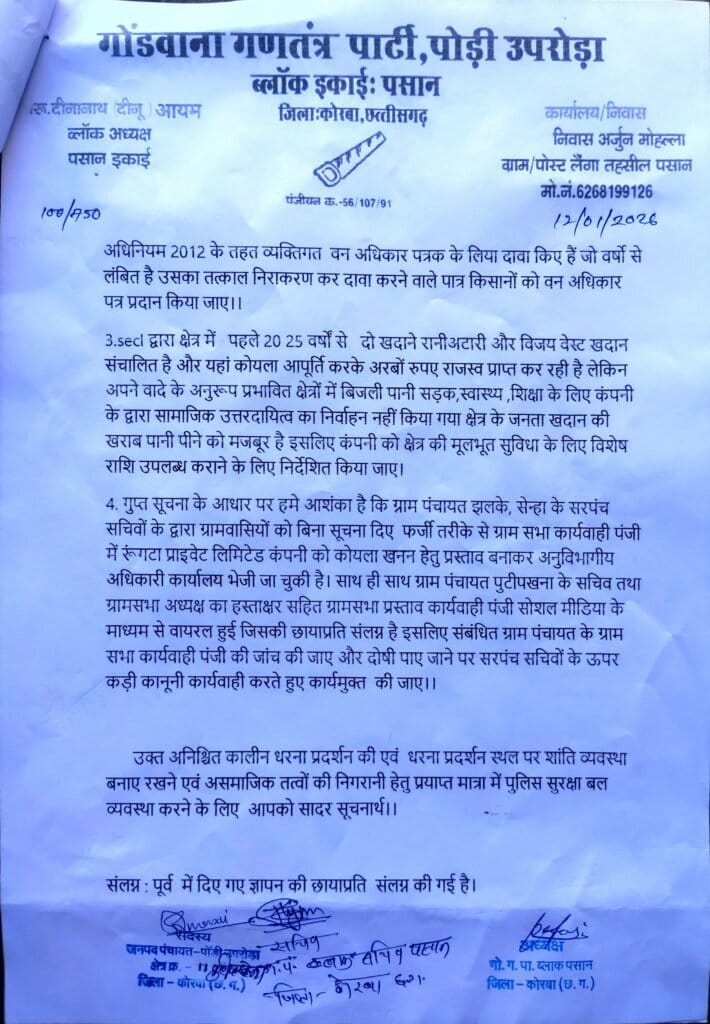 गोंडवाना गणतंत्र पार्टी,पोड़ी उपरोड़ा
ब्लॉक इकाईः पसान
जिलाःकोरबा,छत्तीसगढ़
रू.दीनानाथ (दीनू) आयम
ब्लॉक अध्यक्ष
पसान इकाई
कार्यालय/निवास
निवास अर्जुन मोहल्ला
ग्राम/पोस्ट लैंगा तहसील पसान
मो.नं.6268199126
पंजीयन क.-56/107/91
100/950
12/01/2026
अधिनियम 2012 के तहत व्यक्तिगत वन अधिकार पत्रक के लिया दावा किए हैं जो वर्षो से
लंबित है उसका तत्काल निराकरण कर दावा करने वाले पात्र किसानों को वन अधिकार
पत्र प्रदान किया जाए।।
3.secl द्वारा क्षेत्र में पहले 20 25 वर्षों से दो खदाने रानीअटारी और विजय वेस्ट खदान
संचालित है और यहां कोयला आपूर्ति करके अरबों रुपए राजस्व प्राप्त कर रही है लेकिन
अपने वादे के अनुरूप प्रभावित क्षेत्रों में बिजली पानी सड़क,स्वास्थ्य ,शिक्षा के लिए कंपनी
के द्वारा सामाजिक उत्तरदायित्व का निर्वाहन नहीं किया गया क्षेत्र के जनता खदान की
खराब पानी पीने को मजबूर है इसलिए कंपनी को क्षेत्र की मूलभूत सुविधा के लिए विशेष
राशि उपलब्ध कराने के लिए निर्देशित किया जाए।
4. गुप्त सूचना के आधार पर हमे आशंका है कि ग्राम पंचायत झलके, सेन्हा के सरपंच
सचिवों के द्वारा ग्रामवासियों को बिना सूचना दिए फर्जी तरीके से ग्राम सभा कार्यवाही पंजी
में रूंगटा प्राइवेट लिमिटेड कंपनी को कोयला खनन हेतु प्रस्ताव बनाकर अनुविभागीय
अधिकारी कार्यालय भेजी जा चुकी है। साथ ही साथ ग्राम पंचायत पुटीपखना के सचिव तथा
ग्रामसभा अध्यक्ष का हस्ताक्षर सहित ग्रामसभा प्रस्ताव कार्यवाही पंजी सोशल मीडिया के
माध्यम से वायरल हुई जिसकी छायाप्रति संलग्न है इसलिए संबंधित ग्राम पंचायत के ग्राम
सभा कार्यवाही पंजी की जांच की जाए और दोषी पाए जाने पर सरपंच सचिवों के ऊपर
कड़ी कानूनी कार्यवाही करते हुए कार्यमुक्त की जाए।।
उक्त अनिश्चित कालीन धरना प्रदर्शन की एवं धरना प्रदर्शन स्थल पर शांति व्यवस्था
बनाए रखने एवं असमाजिक तत्वों की निगरानी हेतु प्रयाप्त मात्रा में पुलिस सुरक्षा बल
व्यवस्था करने के लिए आपको सादर सूचनार्थ।।
संलग्न : पूर्व में दिए गए ज्ञापन की छायाप्रति संलग्न की गई है।
सदस्य
जनपद पंचायत-पोंडी उपरोड़ा
क्षेत्र क्र. - 11
जिला – कोरबा (छ. ग.)
सचिव
ब्लाक सचिव पसान
जिला- कोरबा छ.ग.
अध्यक्ष
गो. ग. पा. ब्लाक पसान
जिला – कोरबा (छ. ग.)